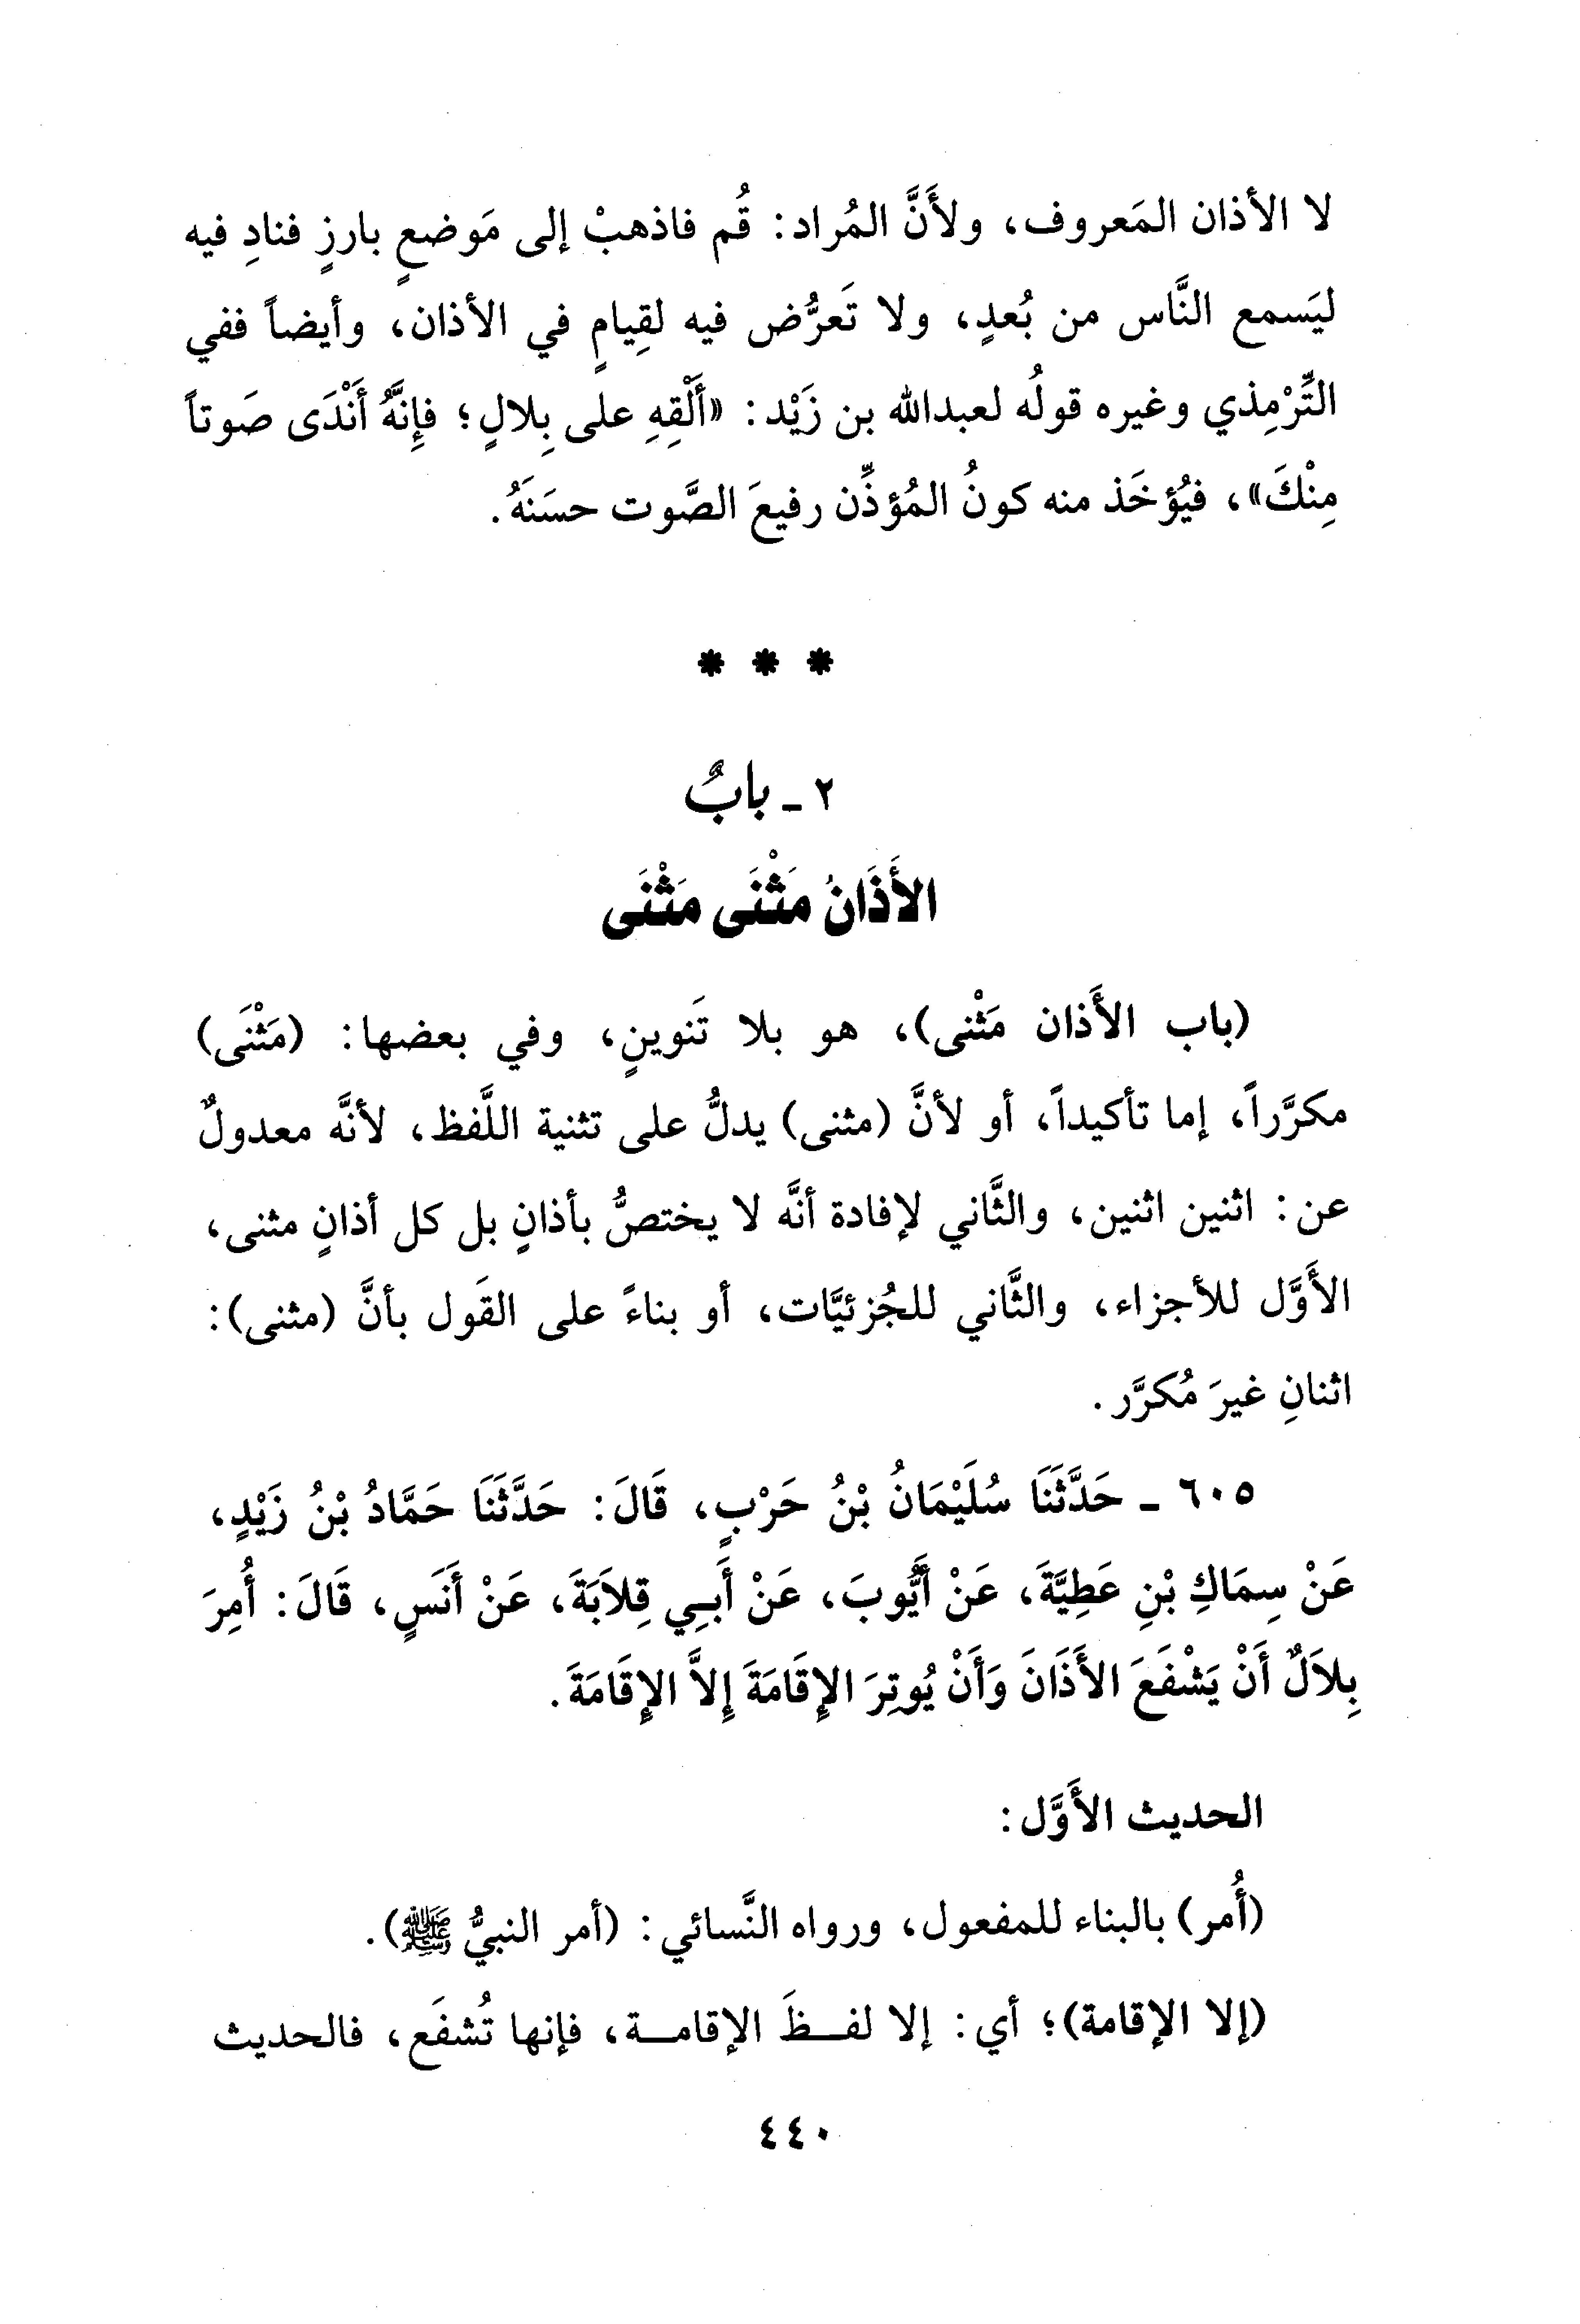 لا الأذان المَعروف، ولأَنَّ المُراد: قُم فاذهبْ إلى مَوضعٍ بارزٍ فنادِ فيه
ليَسمع النَّاس من بُعدٍ، ولا تَعرُّض فيه لقِيامٍ في الأذان، وأيضاً ففي
التِّرْمِذي وغيره قولُه لعبدالله بن زَيْد: «أَلْقِهِ على بِلالٍ؛ فإِنَّهُ أَنْدَى صَوتاً
مِنْكَ»، فيُؤخَذ منه كونُ المُؤذِّن رفيعَ الصَّوت حسَنَهُ.
* * *
٢ - بابٌ
الأَذَانُ مَثْنَى مَثْنَى
(باب الأَذان مَثْنى)، هو بلا تَنوينٍ، وفي بعضها: (مَثْنَى)
مكرَّراً، إما تأكيداً، أو لأنَّ (مثنى) يدلُّ على تثنية اللَّفظ، لأنَّه معدولٌ
عن: اثنين اثنين، والثَّاني لإفادة أنَّه لا يختصُّ بأذانٍ بل كل أذانٍ مثنى،
الأَوَّل للأجزاء، والثَّاني للجُزئيَّات، أو بناءً على القَول بأنَّ (مثنى):
اثنانِ غيرَ مُكرَّر.
٦٠٥ - حَدَّثَنَا سُلَيْمَانُ بْنُ حَرْبٍ، قَالَ: حَدَّثَنَا حَمَّادُ بْنُ زَيْدٍ،
عَنْ سِمَاكِ بْنِ عَطِيَّةَ، عَنْ أَيُّوبَ، عَنْ أَبِي قِلاَبَةَ، عَنْ أَنَسٍ، قَالَ: أُمِرَ
بِلاَلٌ أَنْ يَشْفَعَ الأَذَانَ وَأَنْ يُوتِرَ الإِقَامَةَ إِلاَّ الإِقَامَةَ.
الحديث الأَوَّل:
(أُمر) بالبناء للمفعول، ورواه النَّسائي: (أمر النبيُّ ﷺ).
(إلا الإقامة)؛ أي: إلا لفظَ الإقامة، فإنها تُشفَع، فالحديث
٤٤٠